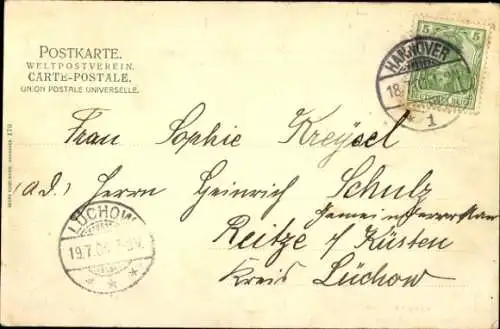 POSTKARTE.
WELTPOSTVEREIN.
CARTE-POSTALE.
UNION POSTALE UNIVERSELLE.
5 5
HANNOVER
18.
* 1
Frau Sophie Kreysel
(ad.) Herrn Heinrich Schulz
Reitze / Küsten
Kreis Lüchow
LÜCHOW
19.7.
* * *